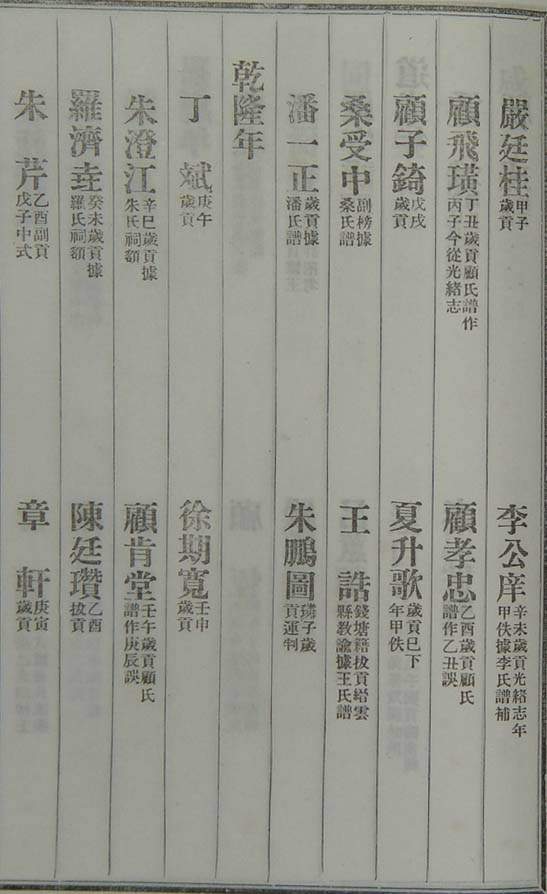 嚴廷桂 甲子歲貢
李公庠 辛未歲貢光緒志年甲佚據李氏譜補
顧飛璜 丁丑歲貢顧氏譜作丙子今從光緒志
顧孝忠 乙酉歲貢顧氏譜作乙丑誤
顧子錡 戊戌歲貢
夏升歌 歲貢已下年甲佚
桑受中 副榜據桑氏譜
王誥 錢塘籍拔貢縉雲縣教諭據王氏譜
潘一正 歲貢據潘氏譜
朱鵬圖 璘子歲貢運判
乾隆年
丁斌 庚午歲貢
徐期寬 壬申歲貢
朱澄江 辛巳歲貢據朱氏祠額
顧肯堂 壬午歲貢顧氏譜作庚辰誤
羅濟垚 癸未歲貢據羅氏祠額
陳廷瓚 乙酉拔貢
朱芹 乙酉副貢戊子中式
章軒 庚寅歲貢